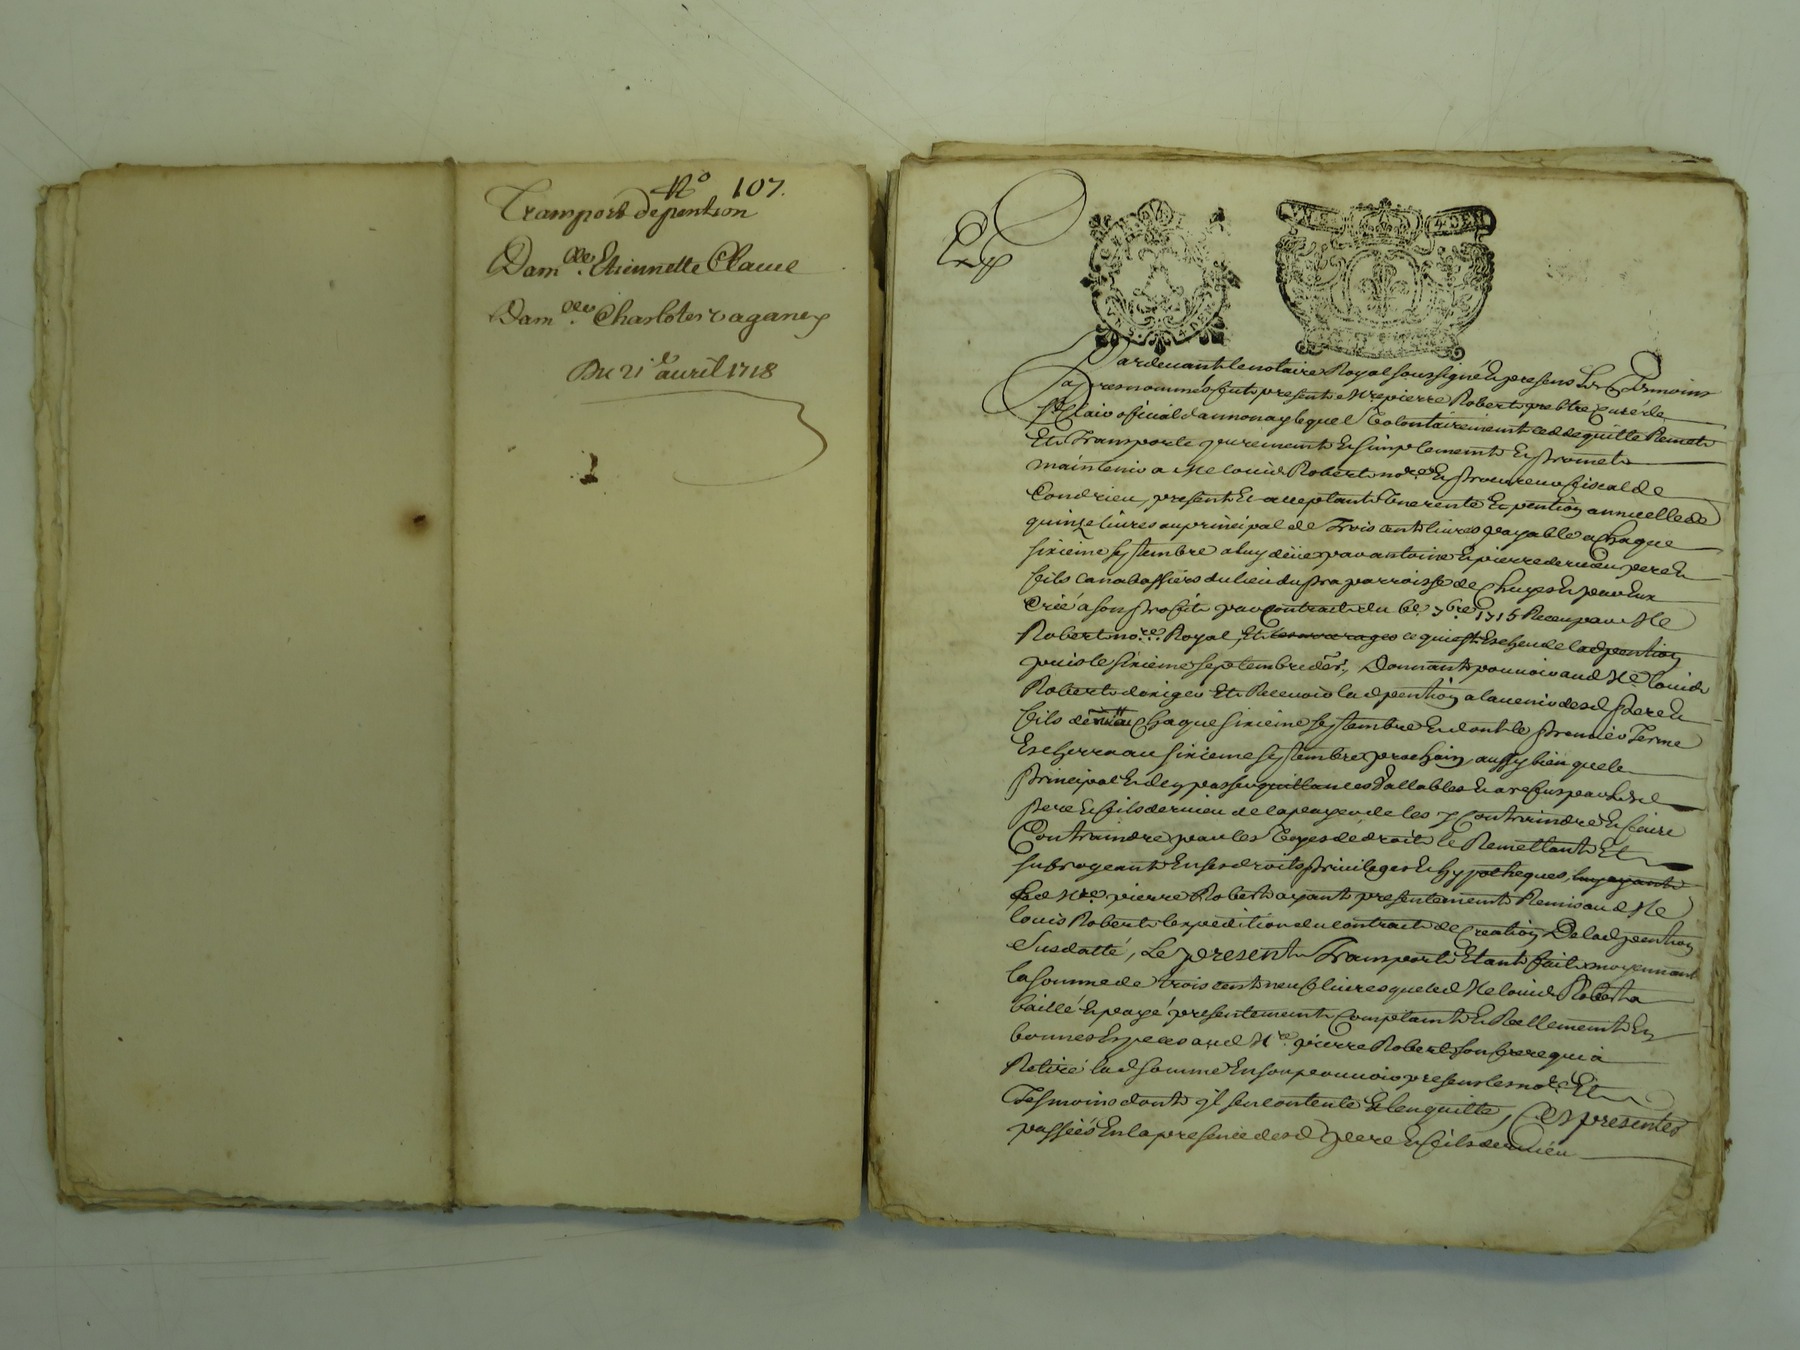 N.o 107.
Transport de pention
Dam.lle Etiennette Claue
Dam.lle Charlote vaganey
Du 21.e auril 1718
Exp
Pardeuant le notaire Royal soussigné Et presens Les Temoins
apres nommés fut present Mre pierre Robert prebtre Curé de
st Clair official dannonay lequel Volontairement cedde quitte Remet
Et Transporte purement Et simplement Et promet
maintenir a Me louis Robert no.re Et procureur fiscal de
Condrieu, present Et acceptant Une rente Et pention annuelle de
quinze liures au principal de Trois cent liures payable a Chaque
sixieme septembre a luy deüe par antoine Et pierre dernieu pere Et
fils canabassiers du lieu du pra parroisse de Chuyes Et par Eux
Créé a son profit par contract du 6e 7bre 1715 Receu par Me
Robert no.re Royal, Et ce qui Est Escheu de lad pention
puis le sixieme septembre der, Donnant pouuoir aud Me louis
Robert dexiger Et Receuoir lad pention a lauenir desd pere Et
fils dernieu Chaque sixieme septembre Et dont le premier Terme
Escherra au sixieme septembre prochain, aussy bien que le
principal Et den passer quittances Vallables Et a refus par lesd
pere Et fils dernieu de la payer de les y Contraindre Et faire
Contraindre par les Voyes de droit le Remettant Et
subrogeant En ses droits priuileges Et hypotheques,
led Mre pierre Robert ayant presentement Remis aud Me
louis Robert lexpedition du contract de Creation De lad pention
Susdatté, Le present Transport Etant fait moyennant
la somme de trois cent neuf liures que led Me louis Robert a
baillé Et payé presentement Comptant Et Reellement En
bonnes Especes aud Mre pierre Robert son frere qui a
Retiré lad somme En son pouuoir presens les no.re Et
Tesmoins dont jl sen contente Et len quitte, Ces presentes
passées En la presence desd pere Et fils dernieu